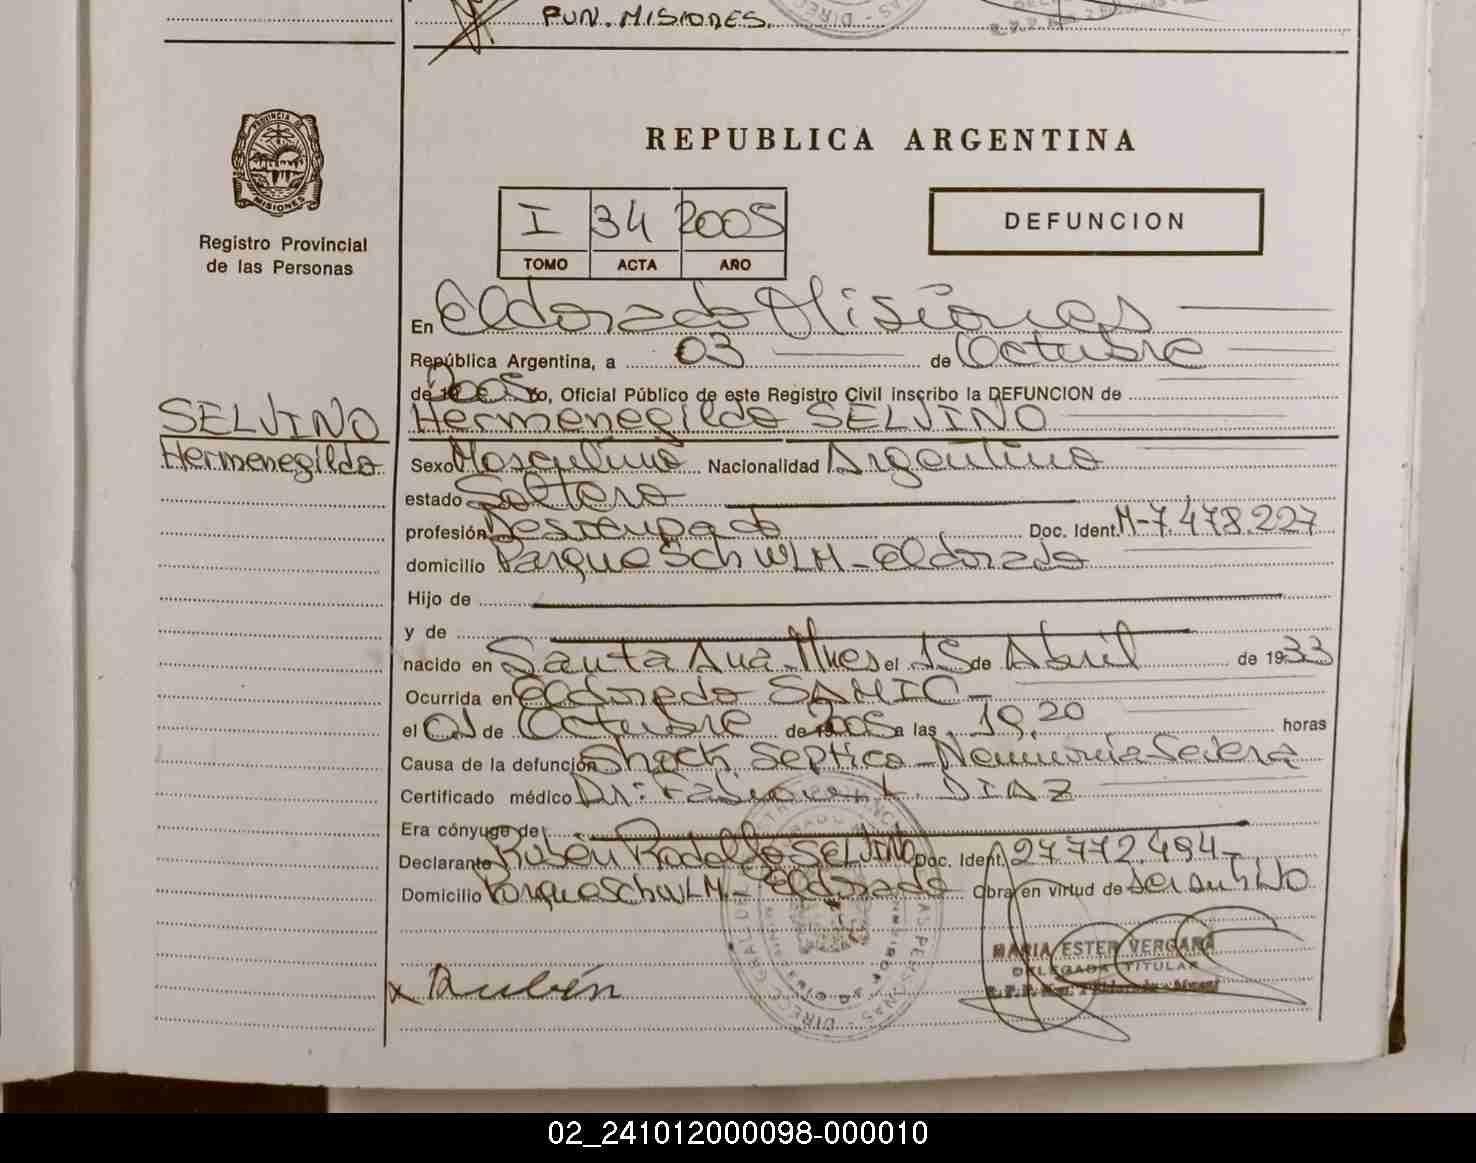 PUN. MISIONES.
REPUBLICA ARGENTINA
PROVINCIA DE MISIONES
Registro Provincial
de las Personas
I 34 2005
TOMO ACTA AÑO
DEFUNCION
En Eldorado Misiones
República Argentina, a 03 de Octubre
de 2005 Yo, Oficial Público de este Registro Civil inscribo la DEFUNCION de
Hermenegildo SELVINO
SELVINO
Hermenegildo
Sexo Masculino Nacionalidad Argentino
estado Soltero
profesión Desocupado Doc. Ident. M-7.478.227
domicilio Parque SchWLM - Eldorado
Hijo de
y de
nacido en Santa Ana - Mnes el 15 de Abril de 1933
Ocurrida en Eldorado SAMIC -
el 01 de Octubre de 2005 a las 19,20 horas
Causa de la defunción Shock Septico - Neumonia Severa
Certificado médico Dr: L. DIAZ
Era cónyuge de
Declarante Ruben Rodolfo SELVINO Doc. Ident. 27.772.494-
Domicilio Parque SchWLM - Eldorado Obra en virtud de ser su hijo
MARIA ESTER VERGARA
DELEGADA TITULAR
x Rubén
02_241012000098-000010